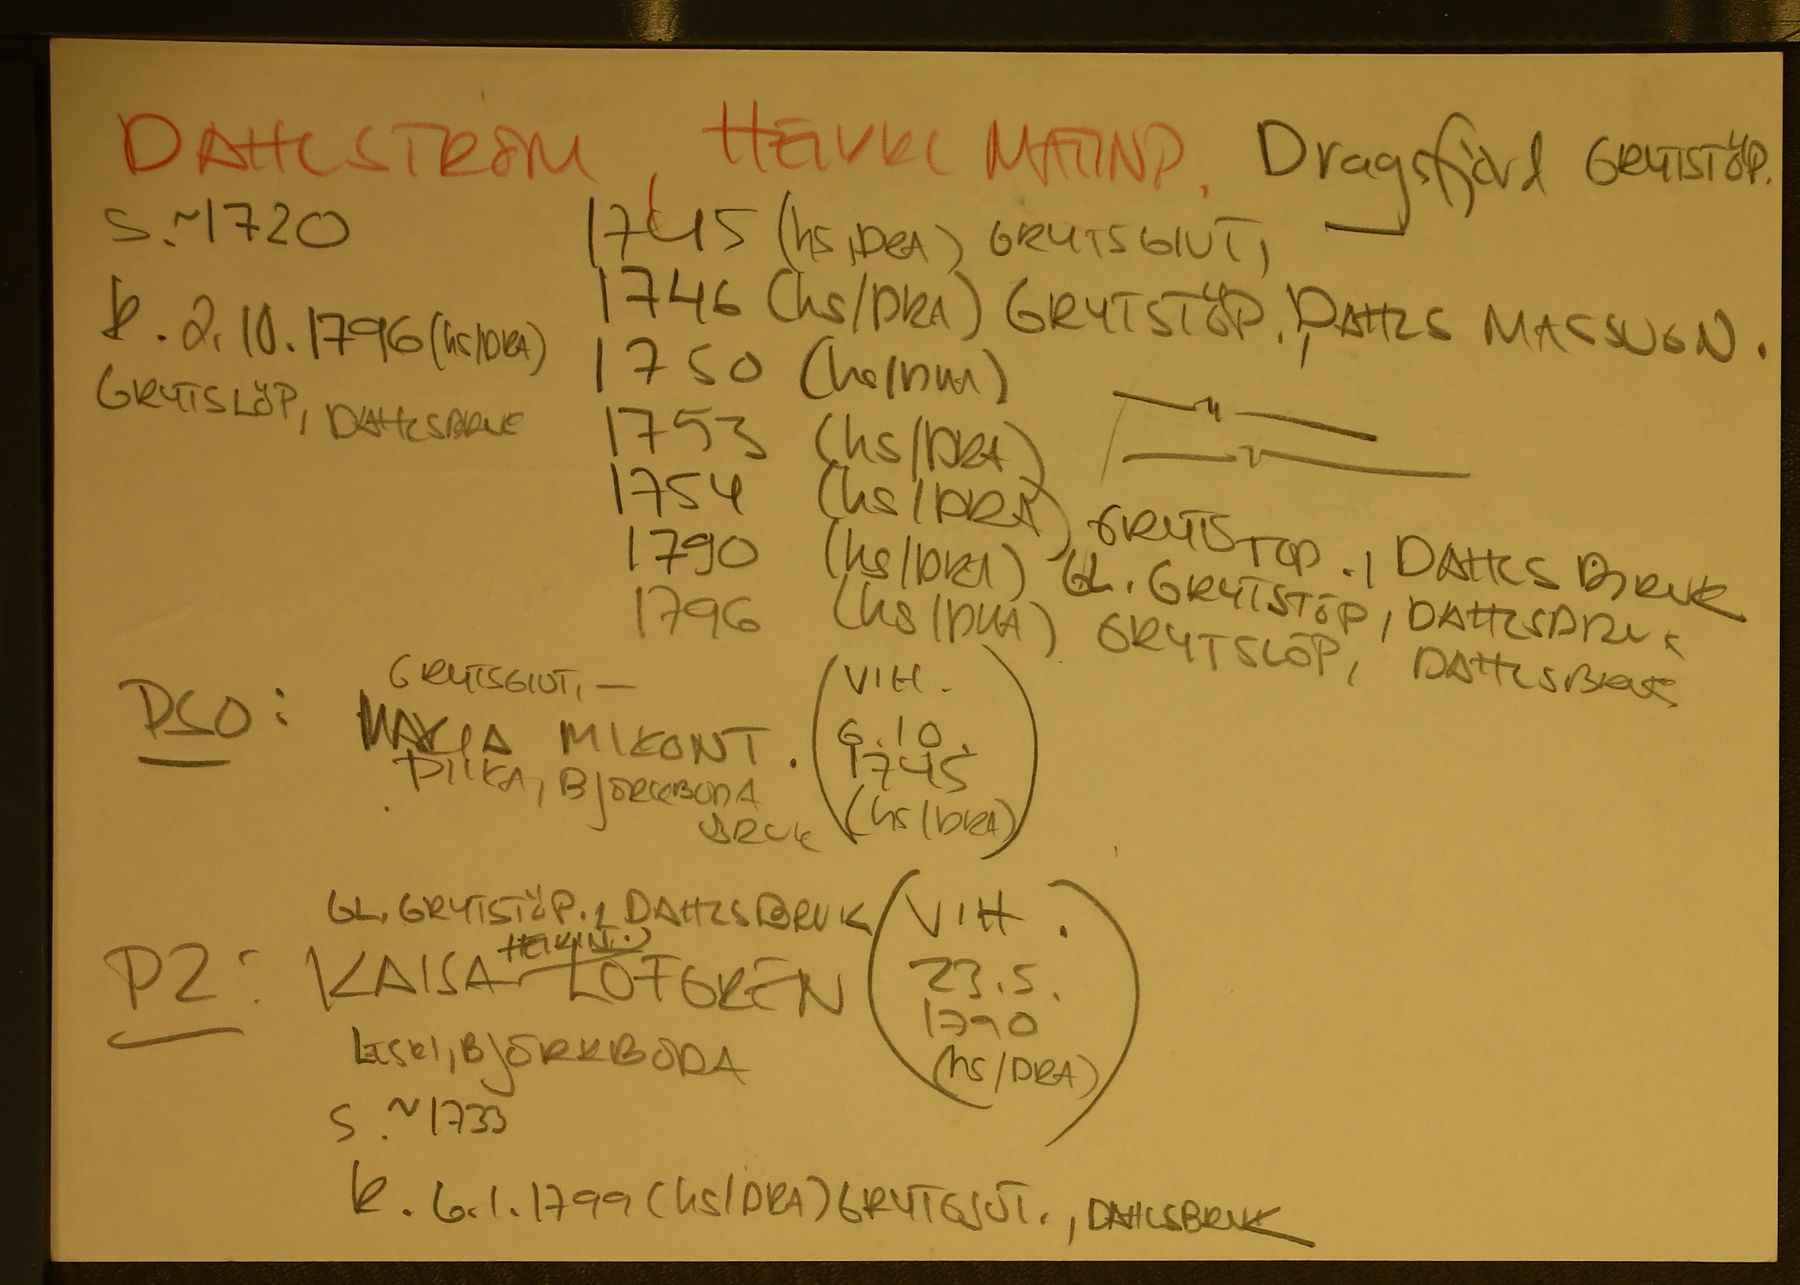 DAHLSTRÖM, HEIKKI MATINP. Dragsfjärd GRYTSTÖP.
s. ~1720
1745 (hs/DRA) GRYTSGJUT,
k. 2.10.1796 (hs/DRA)
GRYTSLÖP, DAHLSBRUK
1746 (hs/DRA) GRYTSTÖP., DAHLS MASSUGN.
1750 (hs/DRA) —"—
1753 (hs/DRA) —"—
1754 (hs/DRA) GRYTSTÖP., DAHLS BRUK
1790 (hs/DRA) GL. GRYTSTÖP, DAHLSBRUK
1796 (hs/DRA) GRYTSLÖP, DAHLSBRUK
GRYTSGJUT, —
PSO: MARIA MIKONT.
PIIKA, BJÖRKBODA
BRUK
(VIH.
6.10.
1745
(hs/DRA))
GL. GRYTSTÖP., DAHLSBRUK
P2: KAISA HEIKINT. LÖFGREN
LESKI, BJÖRKBODA
(VIH.
23.5.
1790
(hs/DRA))
s. ~1733
k. 6.1.1799 (hs/DRA) GRYTGJUT., DAHLSBRUK